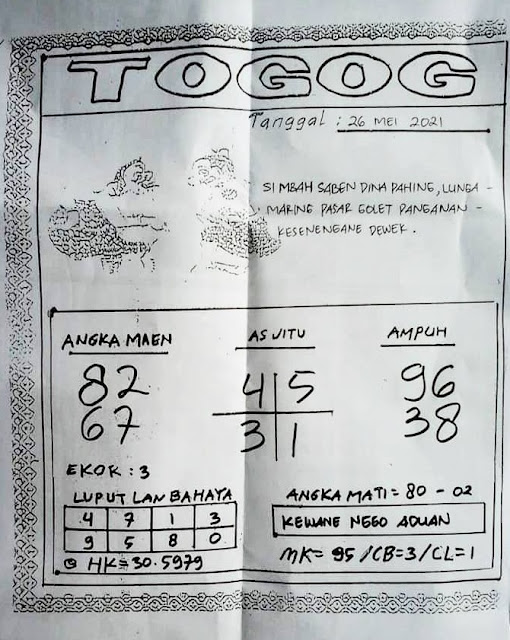 TOGOG
Tanggal : 26 MEI 2021
SI MBAH SABEN DINA PAHING, LUNGA -
MARING PASAR GOLET PANGANAN -
KESENENGANE DEWEK.
ANGKA MAEN
82
67
AS JITU
4 5
3 1
AMPUH
96
38
EKOR : 3
LUPUT LAN BAHAYA
4 7 1 3
9 5 8 0
HK = 30.5979
ANGKA MATI = 80 - 02
KEWANE NGGO ADUAN
MK= 95 / CB=3 / CL=1